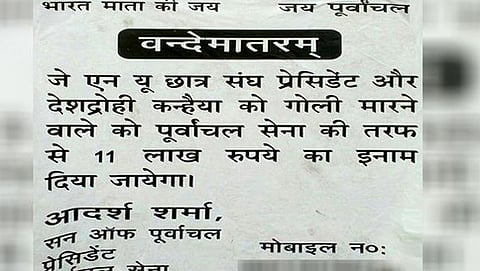 भारत माता की जय जय पूर्वांचल
वन्देमातरम्
जे एन यू छात्र संघ प्रेसिडेंट और
देशद्रोही कन्हैया को गोली मारने
वाले को पूर्वांचल सेना की तरफ
से 11 लाख रुपये का इनाम
दिया जायेगा।
आदर्श शर्मा,
सन ऑफ पूर्वांचल
प्रेसिडेंट
मोबाइल न०:
सेना